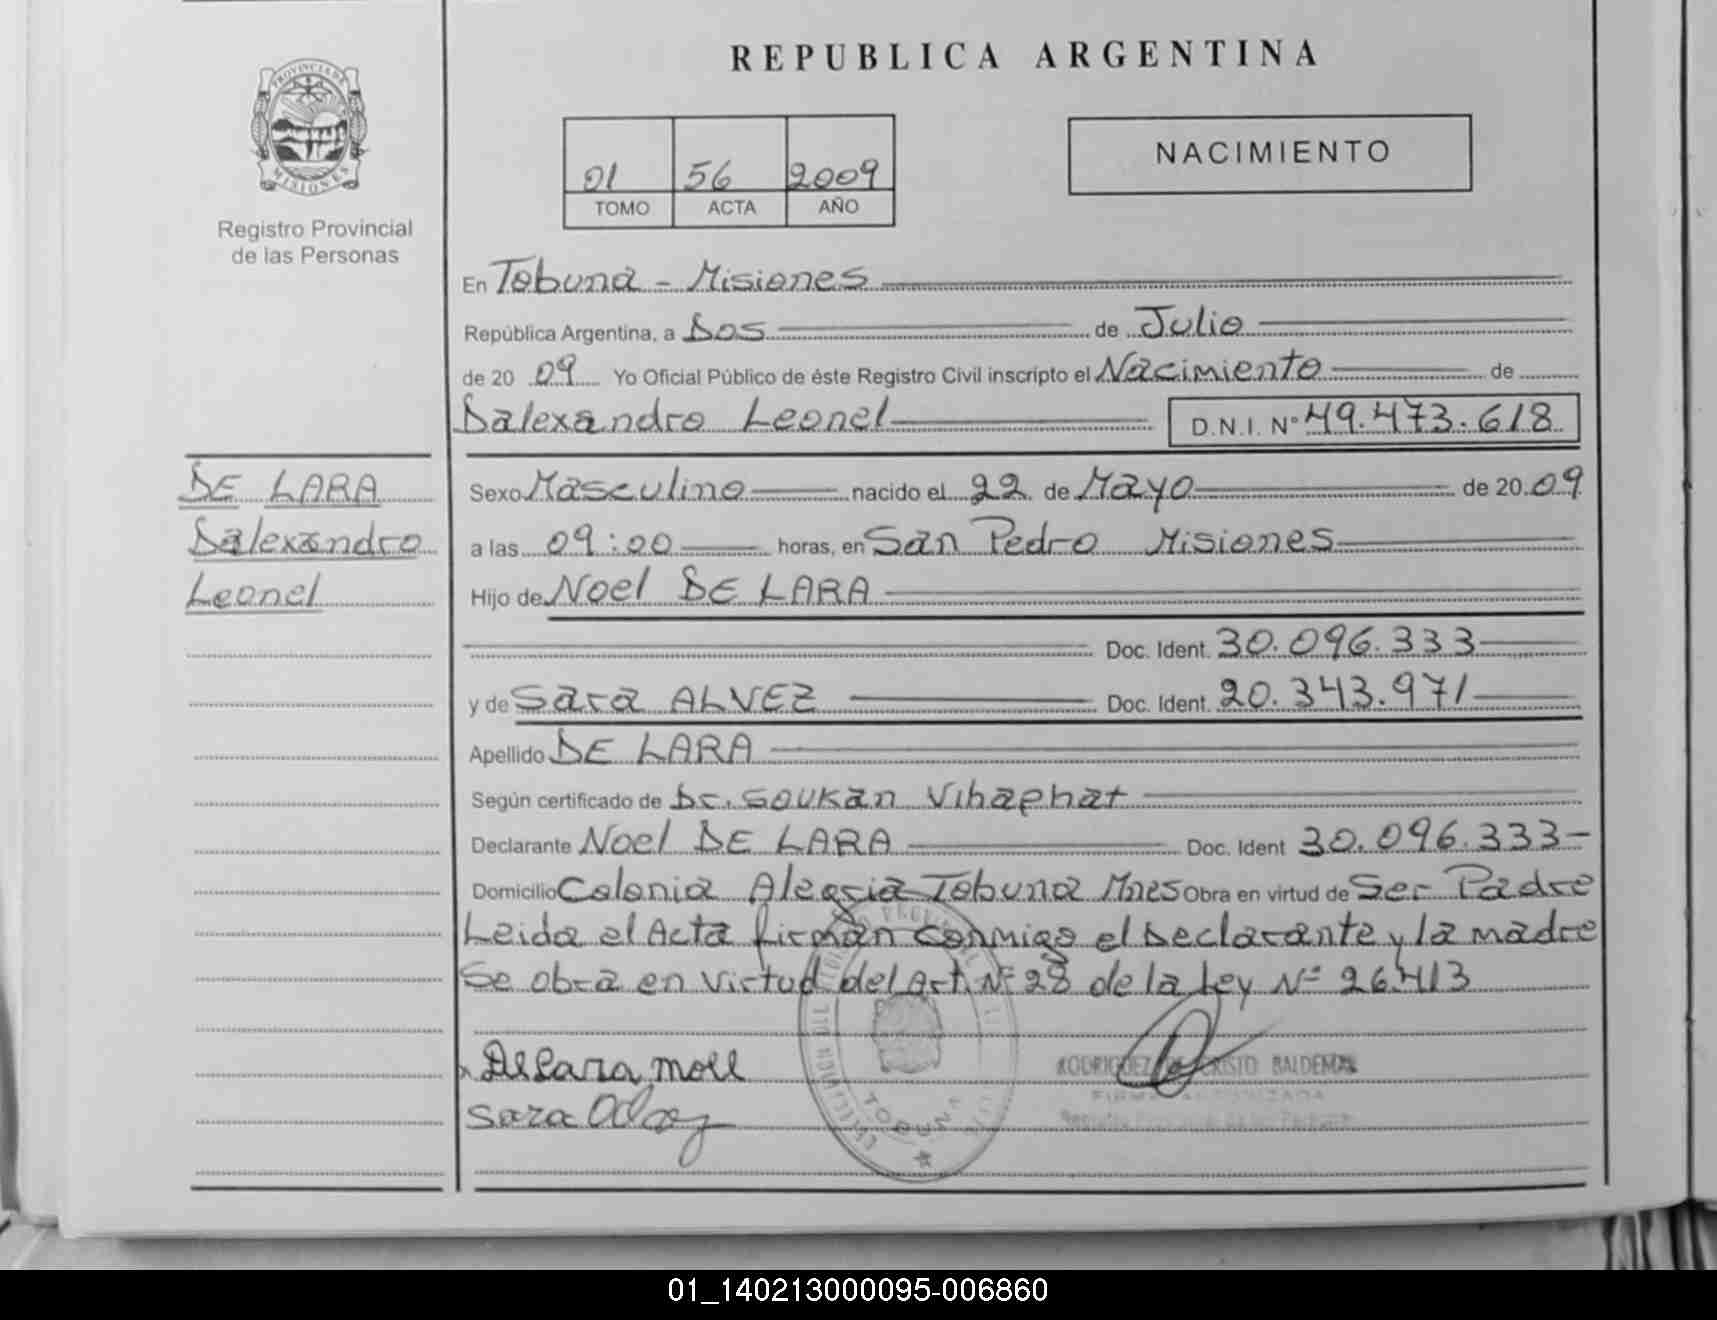 REPUBLICA ARGENTINA
PROVINCIA DE
MISIONES
Registro Provincial
de las Personas
01 56 2009
TOMO ACTA AÑO
NACIMIENTO
En Tobuna - Misiones
República Argentina, a Dos de Julio
de 20 09 Yo Oficial Público de éste Registro Civil inscripto el Nacimiento de
Dalexandro Leonel D.N.I. Nº 49.473.618
DE LARA
Dalexandro
Leonel
Sexo Masculino nacido el 22 de Mayo de 20 09
a las 09:00 horas, en San Pedro Misiones
Hijo de Noel DE LARA
Doc. Ident. 30.096.333
y de Sara ALVEZ Doc. Ident. 20.343.971
Apellido DE LARA
Según certificado de Dr. Goukan Vihaphat
Declarante Noel DE LARA Doc. Ident 30.096.333-
Domicilio Colonia Alegria Tobuna Mnes Obra en virtud de Ser Padre
Leida el Acta firman conmigo el Declarante y la madre
Se obra en virtud del Art. Nº 28 de la Ley Nº 26413
De Lara
Sara
RODRIGUEZ DE CRISTO BALDEMAR
FIRMA AUTORIZADA
TOBUNA
01_140213000095-006860